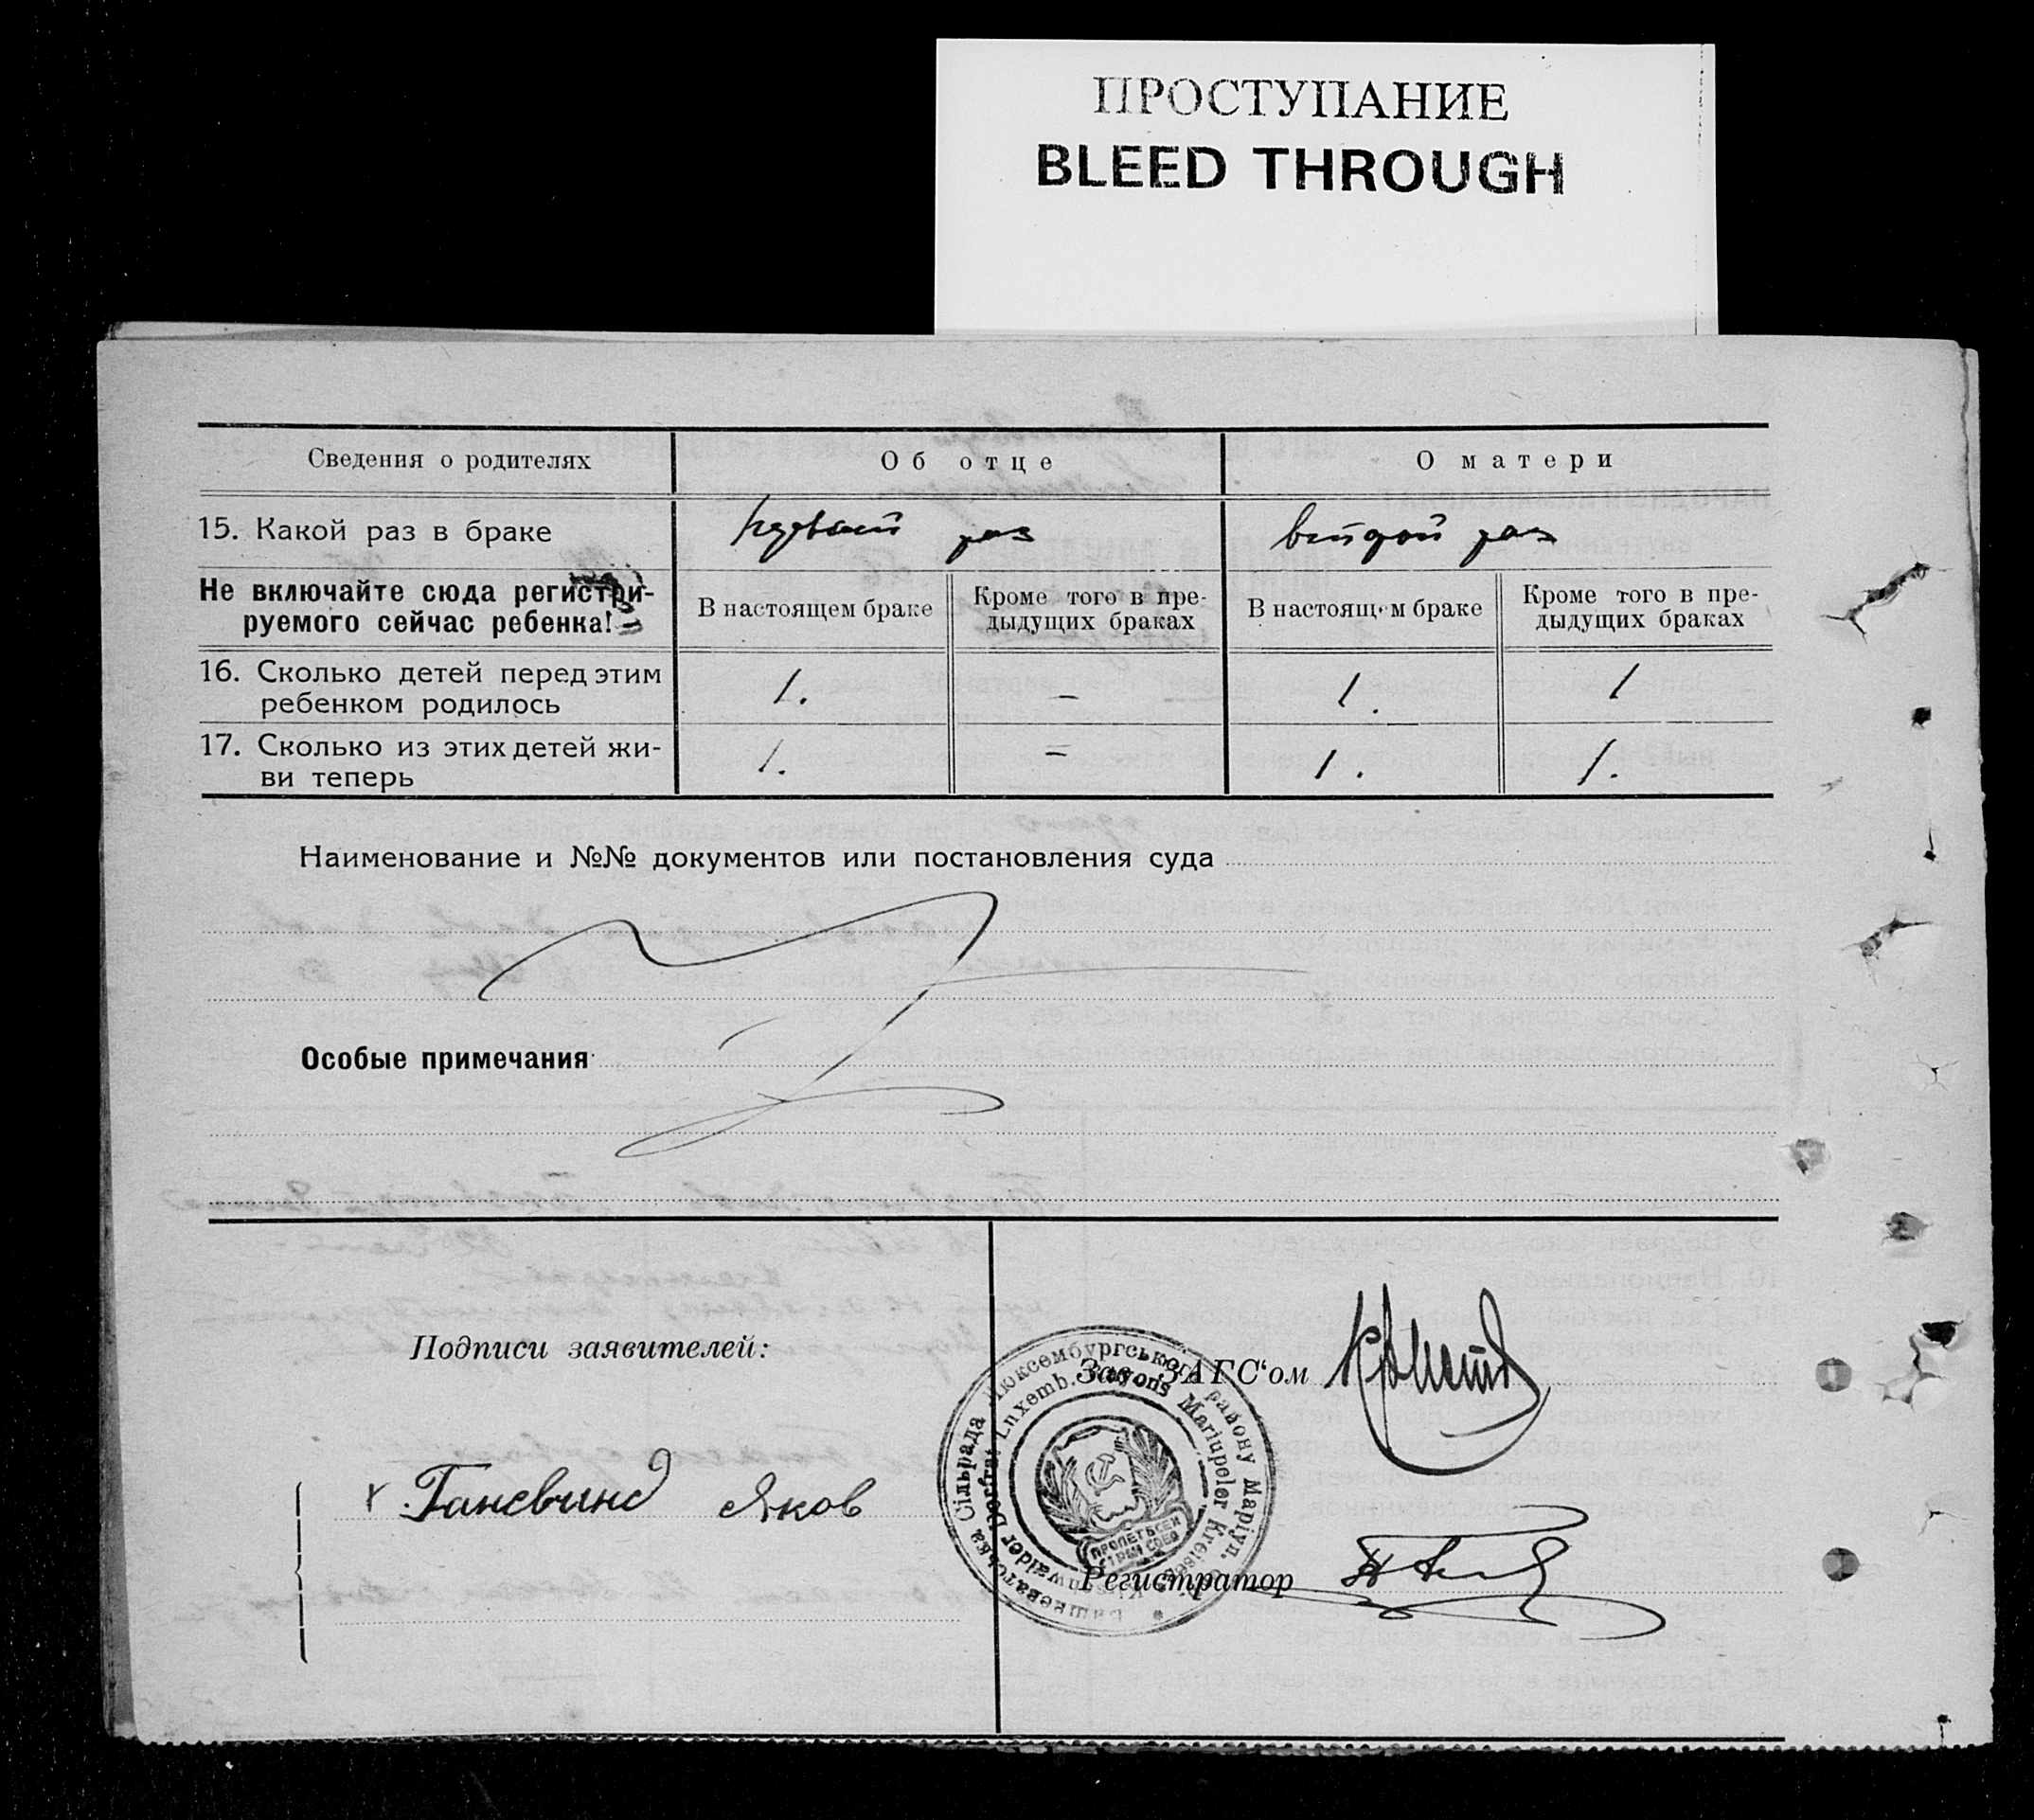 ПРОСТУПАНИЕ
BLEED THROUGH
Сведения о родителях Об отце О матери
15. Какой раз в браке первый раз второй раз
Не включайте сюда регистри-
руемого сейчас ребенка!
В настоящем браке
Кроме того в пре-
дыдущих браках
В настоящем браке
Кроме того в пре-
дыдущих браках
16. Сколько детей перед этим
ребенком родилось
1. – 1. 1
17. Сколько из этих детей жи-
ви теперь
1. = 1. 1.
Наименование и №№ документов или постановления суда
Особые примечания
Подписи заявителей:
Зав. ЗАГС‘ом
Яков
Регистратор
Сільрада Люксембургського району Маріуп.
Dorfrat Luxemb. Rayons Mariupoler Kreises